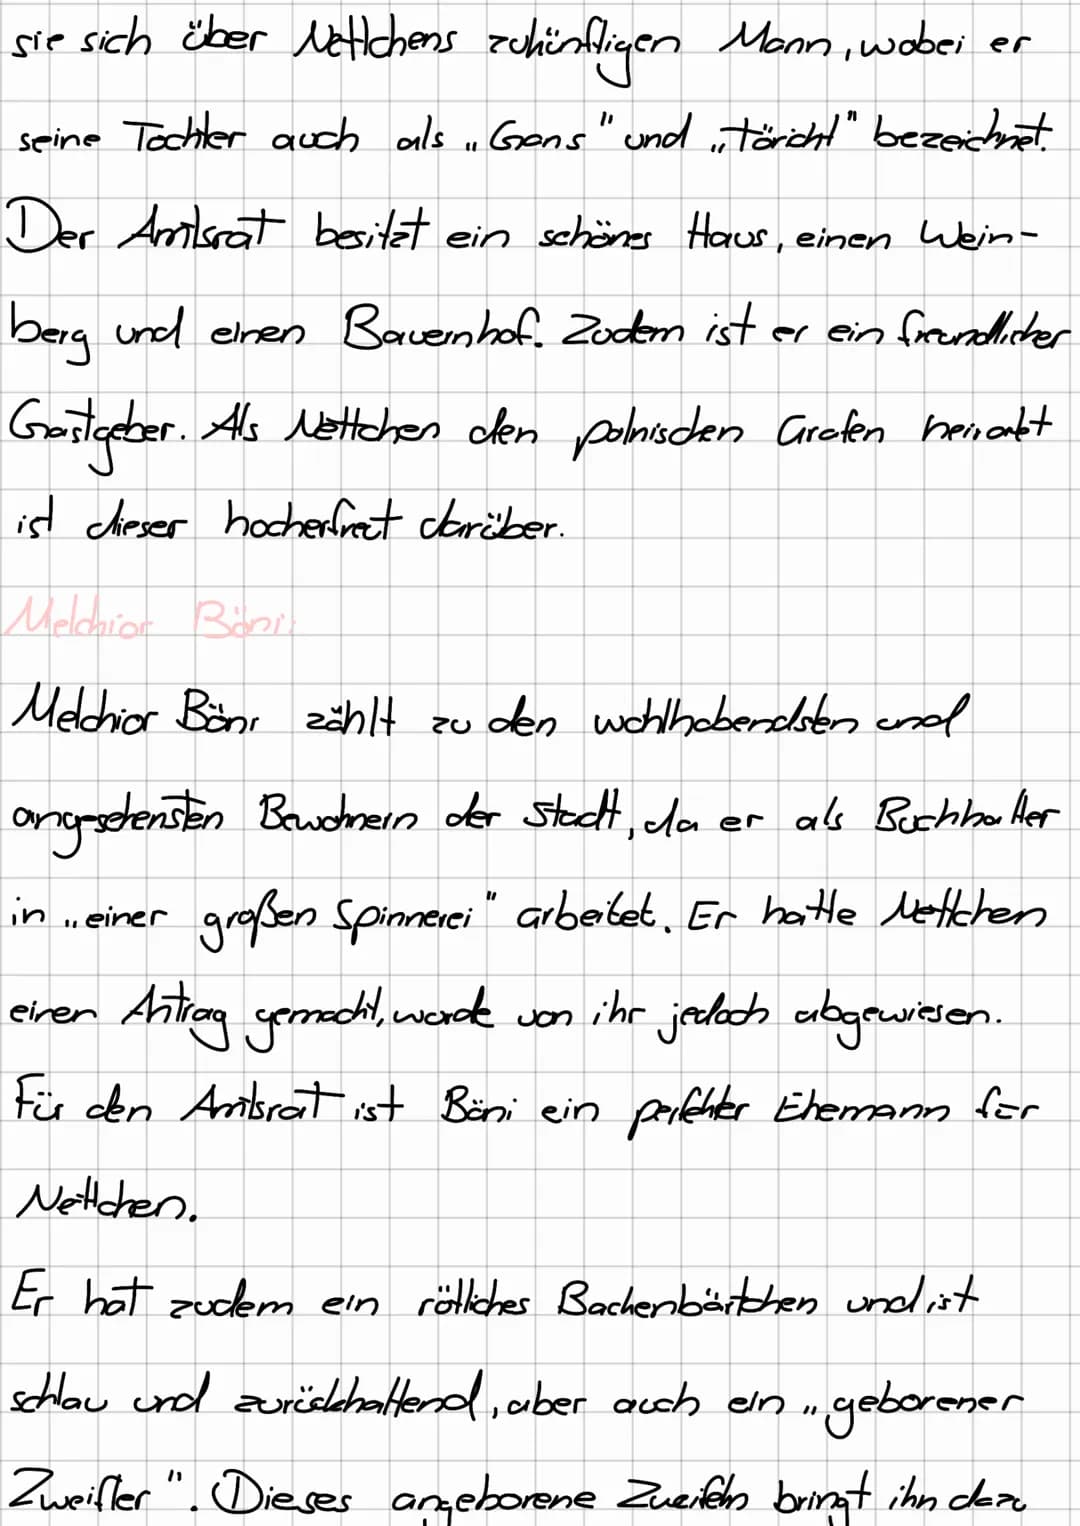 sie sich über Nettchens zukünftigen Mann, wobei er
seine Tochter auch als „Gans" und „töricht" bezeichnet.
Der Amtsrat besitzt ein schönes Haus, einen Wein-
berg und einen Bauernhof. Zudem ist er ein freundlicher
Gastgeber. Als Nettchen den polnischen Grafen heiratet
ist dieser hocherfreut darüber.
Melchior Böni:
Melchior Böni zählt zu den wohlhabendsten und
angesehensten Bewohnern der Stadt, da er als Buchhalter
in „einer großen Spinnerei" arbeitet. Er hatte Nettchen
einen Antrag gemacht, wurde von ihr jedoch abgewiesen.
Für den Amtsrat ist Böni ein perfekter Ehemann für
Nettchen.
Er hat zudem ein rötliches Backenbärtchen und ist
schlau und zurückhaltend, aber auch ein „geborener
Zweifler". Dieses angeborene Zweifeln bringt ihn dazu